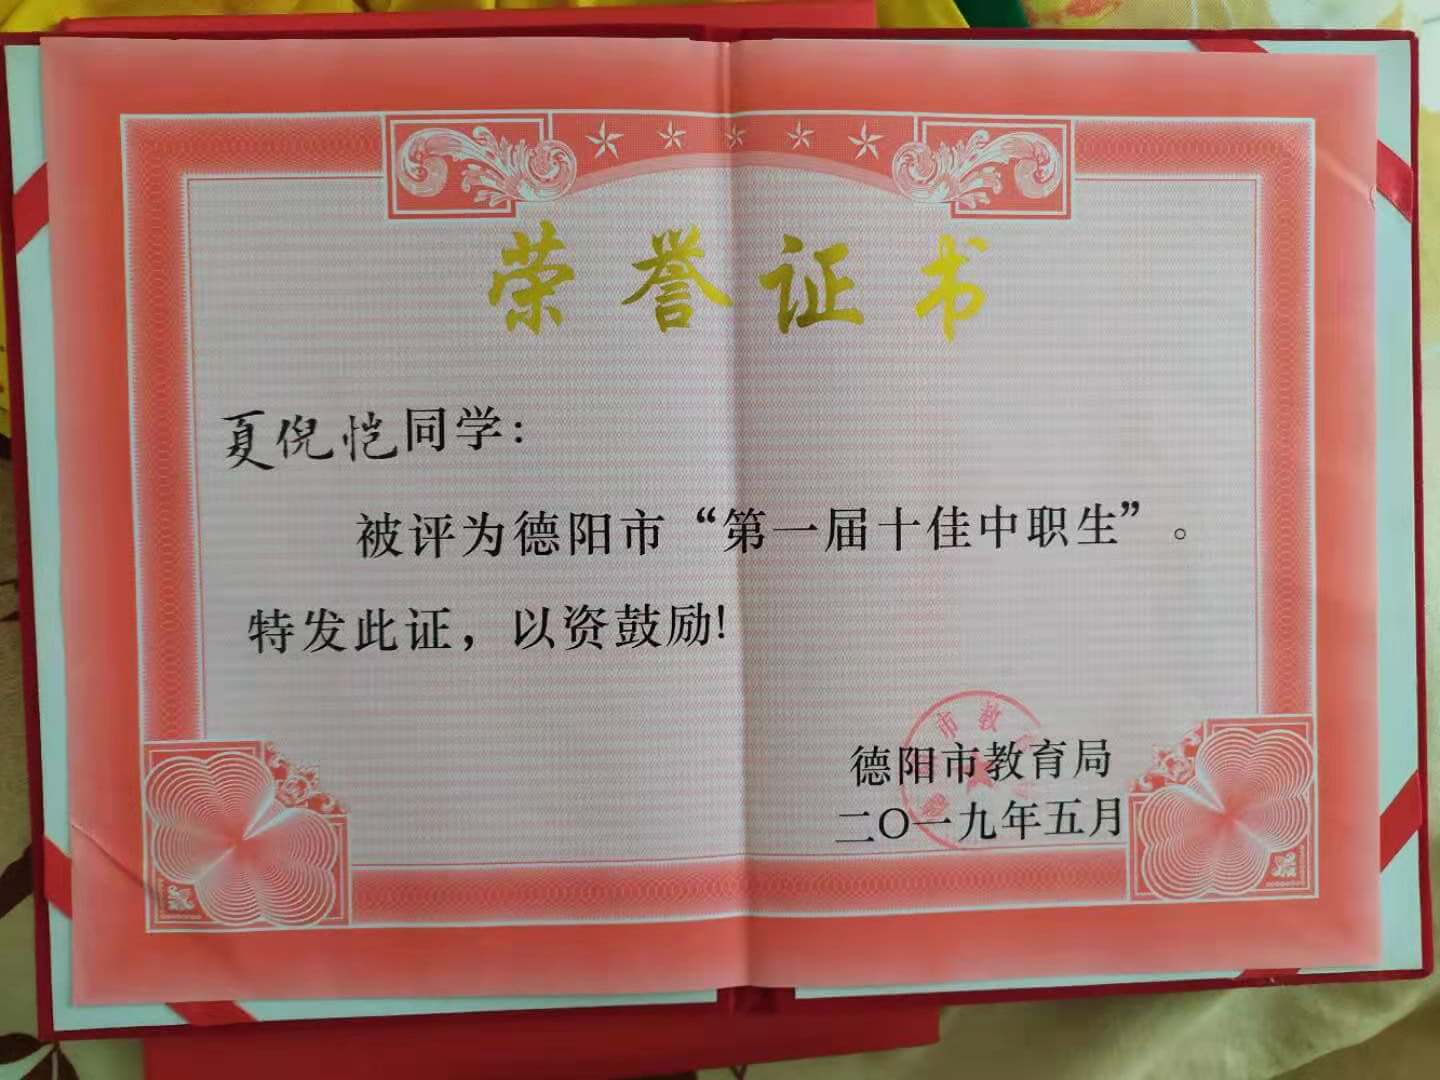 荣誉证书
夏倪恺同学：
被评为德阳市“第一届十佳中职生”。
特发此证，以资鼓励！
德阳市教育局
二〇一九年五月
市教